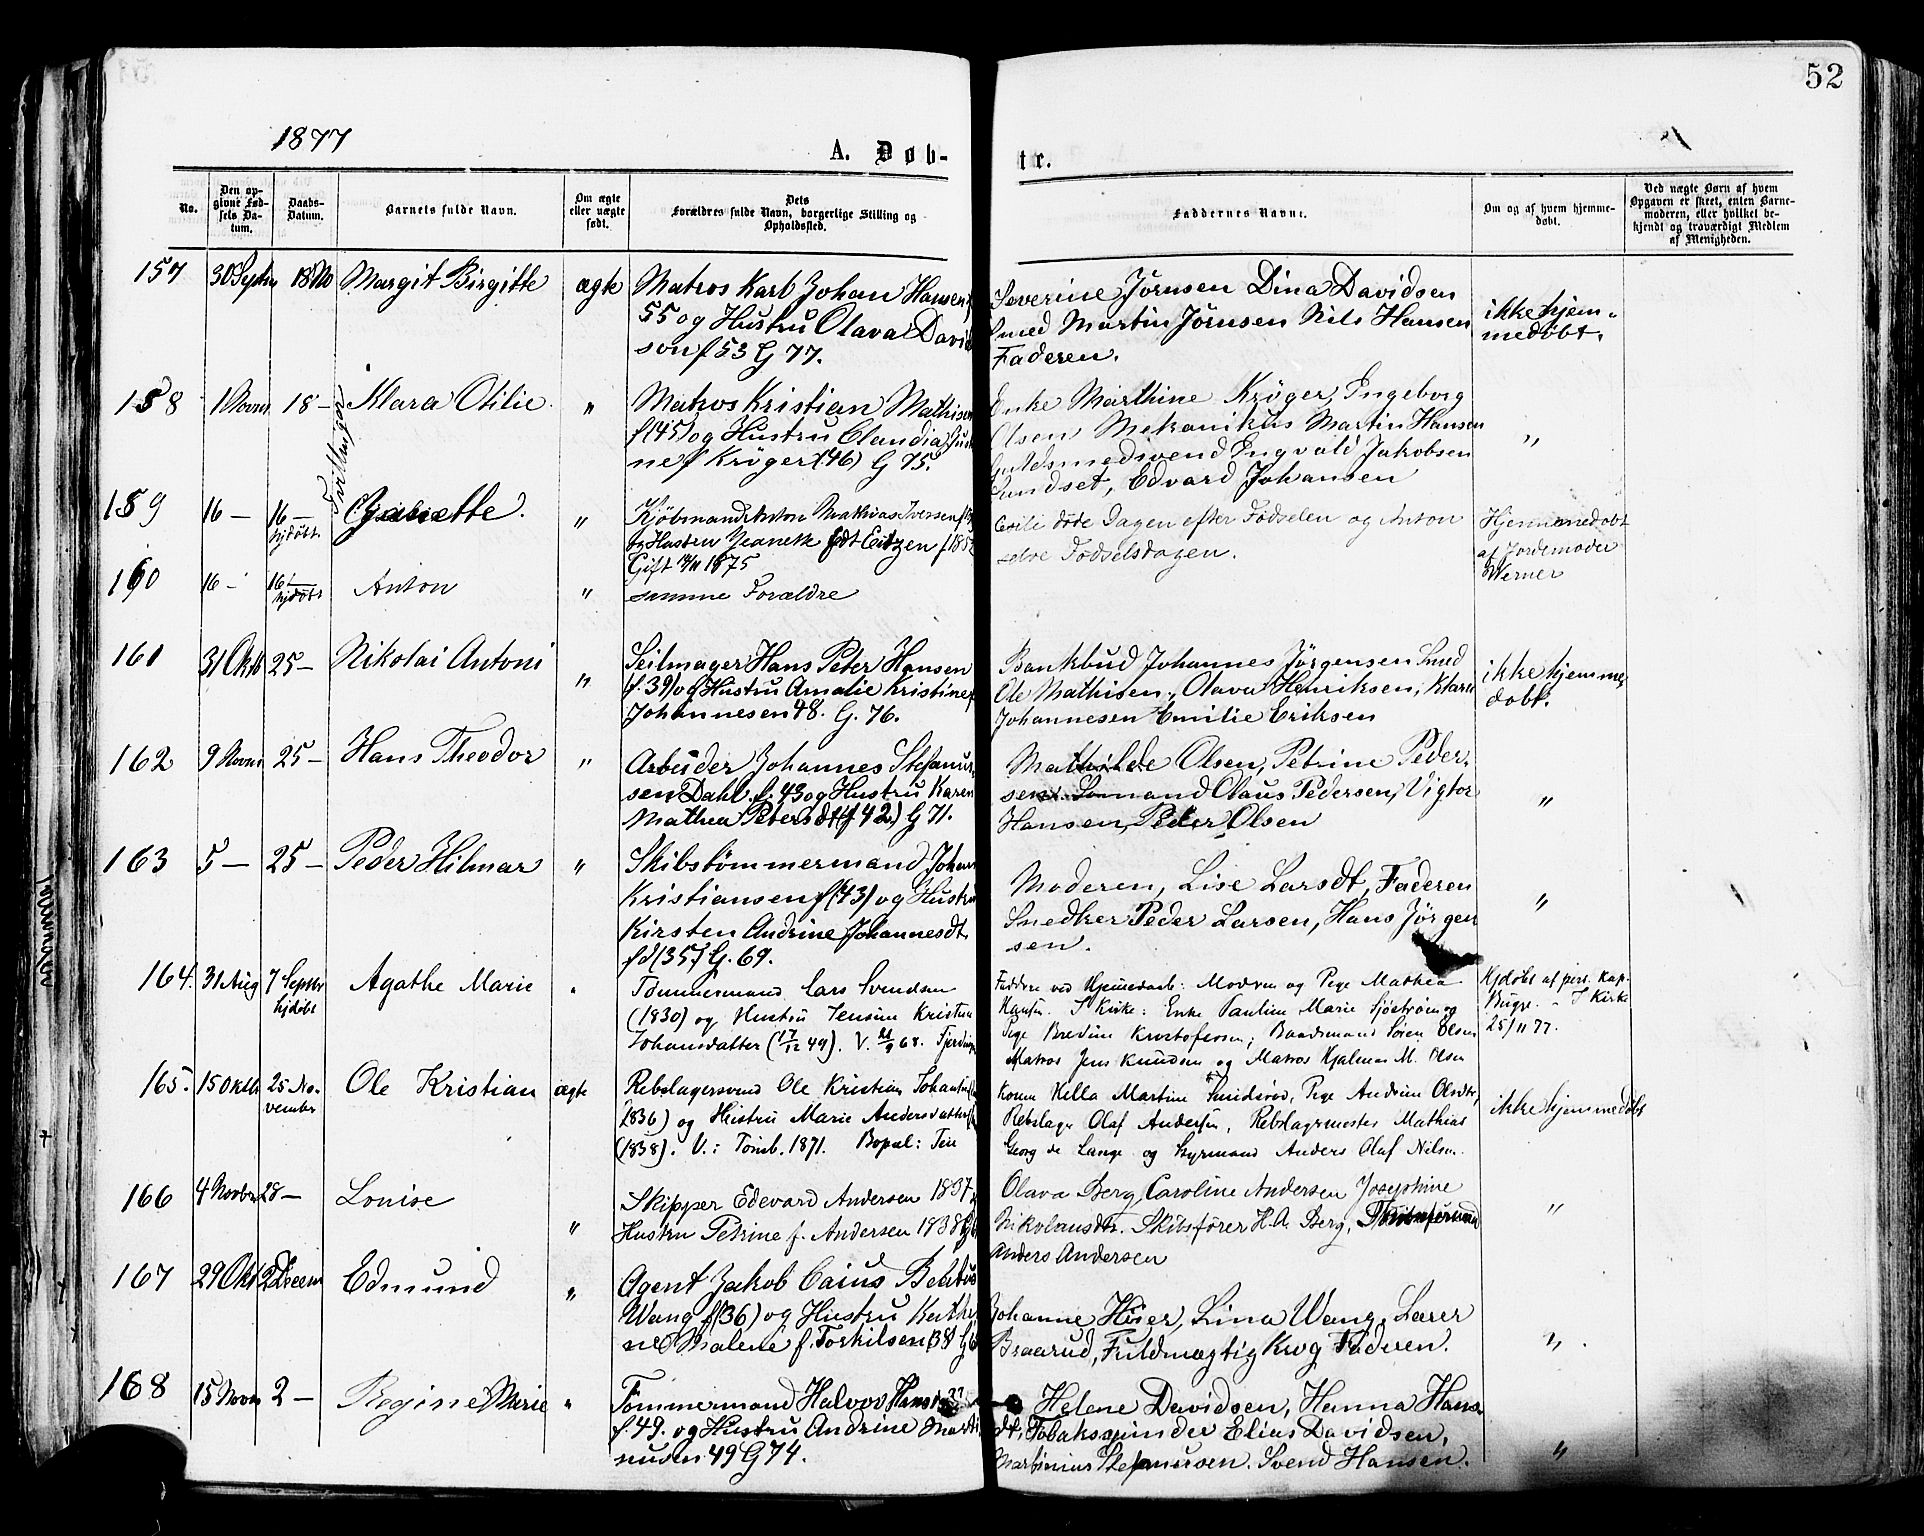 52
1877
A. Døb-
tr.
No.
Den op-
givne Fød-
sels Da-
tum.
Daabs-
Datum.
Barnets fulde Navn.
Om ægte
eller uægte
født.
Dets
Forældres fulde Navn, borgerlige Stilling og
Opholdssted.
Faddernes Navne.
Om og af hvem hjemme-
døbt.
Ved uægte Børn af hvem
Opgaven er skeet, enten Barne-
moderen, eller hvilket be-
kjendt og troværdigt Medlem
af Menigheden.
157 30 Septbr 18 No Margit Birgitte ægte
Matros Karl Johan Hansen f
55 og Hustru Olava David
son f 53 G 77.
Severine Jörnsen Dina Davidsen
Smed Martin Jörnsen Nils Hansen
Faderen.
ikke hjem-
medøbt.
158 1 Novm 18 – Klara Otilie "
Matros Kristian Mathisen
f (45) og Hustru Claudia Just
ne f Kröger (46) G 75.
Enke Marthine Kröger, Ingeborg
Olsen Mekanikus Martin Hansen
Guldsmedsvend Ingvald Jakobsen
Sundset, Edvard Johansen
"
Tvillinger
159 16 – 16 –
hjdøbt "
Kjöbmand Anton Mathias Iversen f
og Hustru Jeanett fdt Eitzen f 185
Gift 1875
Cecili døde Dagen efter Fødselen og Anton
selve Fødselsdagen.
Hjemmedøbt
af Jordemoder
Werner
160 16 – 16 –
hjdøbt Anton "
samme Forældre
161 31 Oktb 25 – Nikolai Antoni "
Seilmager Hans Peter Hansen
(f. 39) og Hustru Amalie Kristine f
Johannesen 48. G. 76.
Bankbud Johannes Jørgensen Smed
Ole Mathisen, Olava Henriksen, Klara
Johannesen Emilie Eriksen
ikke hjemme
døbt.
162 9 Novm 25 – Hans Theodor "
Arbeider Johannes Stefanus
sen Dahl f. 43 og Hustru Karen
Mathea Petersdt (f 42) G 71.
Mathilde Olsen, Petrine Peder
sen Sømand Olaus Pedersen, Vigtor
Hansen, Peder Olsen
"
163 5 – 25 – Peder Hilmar "
Skibstømmermand Johan
Kristiansen f (43) og Hustru
Kirsten Andrine Johannesdt.
fd (35) G. 69.
Moderen, Lise Larsdt, Faderen
Snedker Peder Larsen, Hans Jörgen
sen.
"
164. 31 Aug 7 Septbr
hjdøbt Agathe Marie "
Tømmermand Lars Svendsen
(1830) og Hustru Jensine Kristine
Johansdatter (17/12 44). V. 68. Fjerdingen
Faddere ved Hjemmedaab: Moderen og Pige Mathea
Hansen. I Kirke: Enke Pauline Marie Sjöström og
Pige Bredine Kristofersen; Baadsmand Søren Olsen
Matros Jens Knudsen og Matros Hjalmar M. Olsen
Hjdøbt af pers. Kap.
Bugge. – I Kirke
25/11 77.
165. 15 Oktb. 25 No-
vember Ole Kristian ægte
Rebslagersvend Ole Kristian Johansen
(1836) og Hustru Marie Andersdatter
(1838). V.: Tønsb. 1871. Bopæl: Tøn
Kone Hella Martine Smidsrød, Pige Andrine Olsdtr,
Rebslager Olaf Andersen, Rebslagermester Mathias
Georg de Lange og Styrmand Anders Olaf Nilsen.
ikke hjemmedøbt
166 4 Novbr 28 – Louise "
Skipper Edevard Andersen 1837
Hustru Petrine f. Andersen 1838
Olava Berg, Caroline Andersen Josephine
Nikolausdtr. Skibsfører H. A. Berg,
Anders Andersen
"
167 29 Okt 2 Decem Edmund "
Agent Jakob Caius
Wang f (36) og Hustru Kathe
ne Malene f. Torkilsen (38)
Johanne Höier, Lina Wang, Lærer
Braarud, Fuldmægtig Krog Faderen.
"
168 15 Novm 2 – Regine Marie "
Tømmermand Halvor Hans
f. 49. og Hustru Andrine Marti
nusen 49 G 74.
Helene Davidsen, Hanna Hans
dt, Tobakspinder Elias Davidsen,
Martinius Stefanusen. Svend Hansen.
"